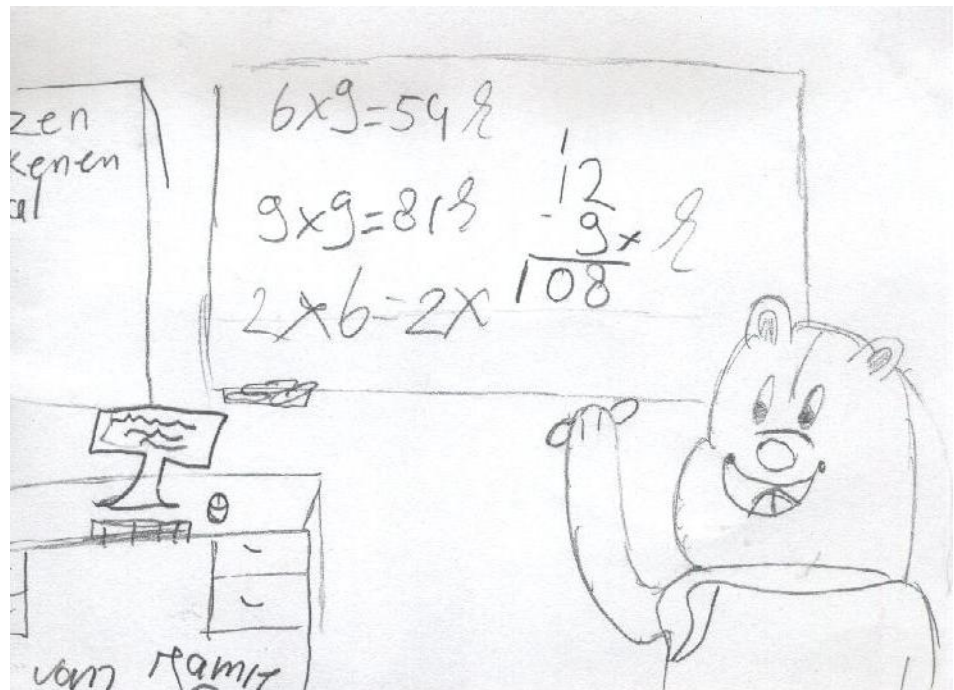 zen
kenen
al
6x9=54
9x9=81
2x6=2x
1
12
9x
108
van Hamit